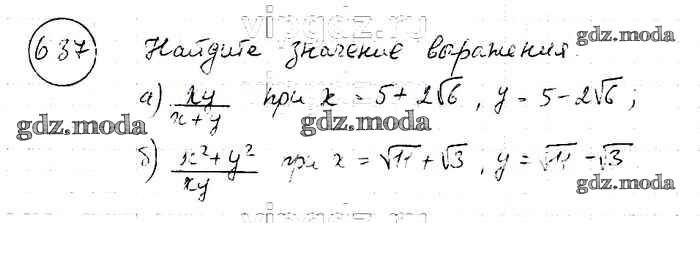 vipgdz.ru
637 Найдите значение выражения. gdz.moda
а) xy/(x+y) при x = 5+2√6, y = 5-2√6;
gdz.moda gdz.moda
б) (x²+y²)/(xy) при x = √11+√3, y = √11-√3
gdz.moda
vipgdz.ru